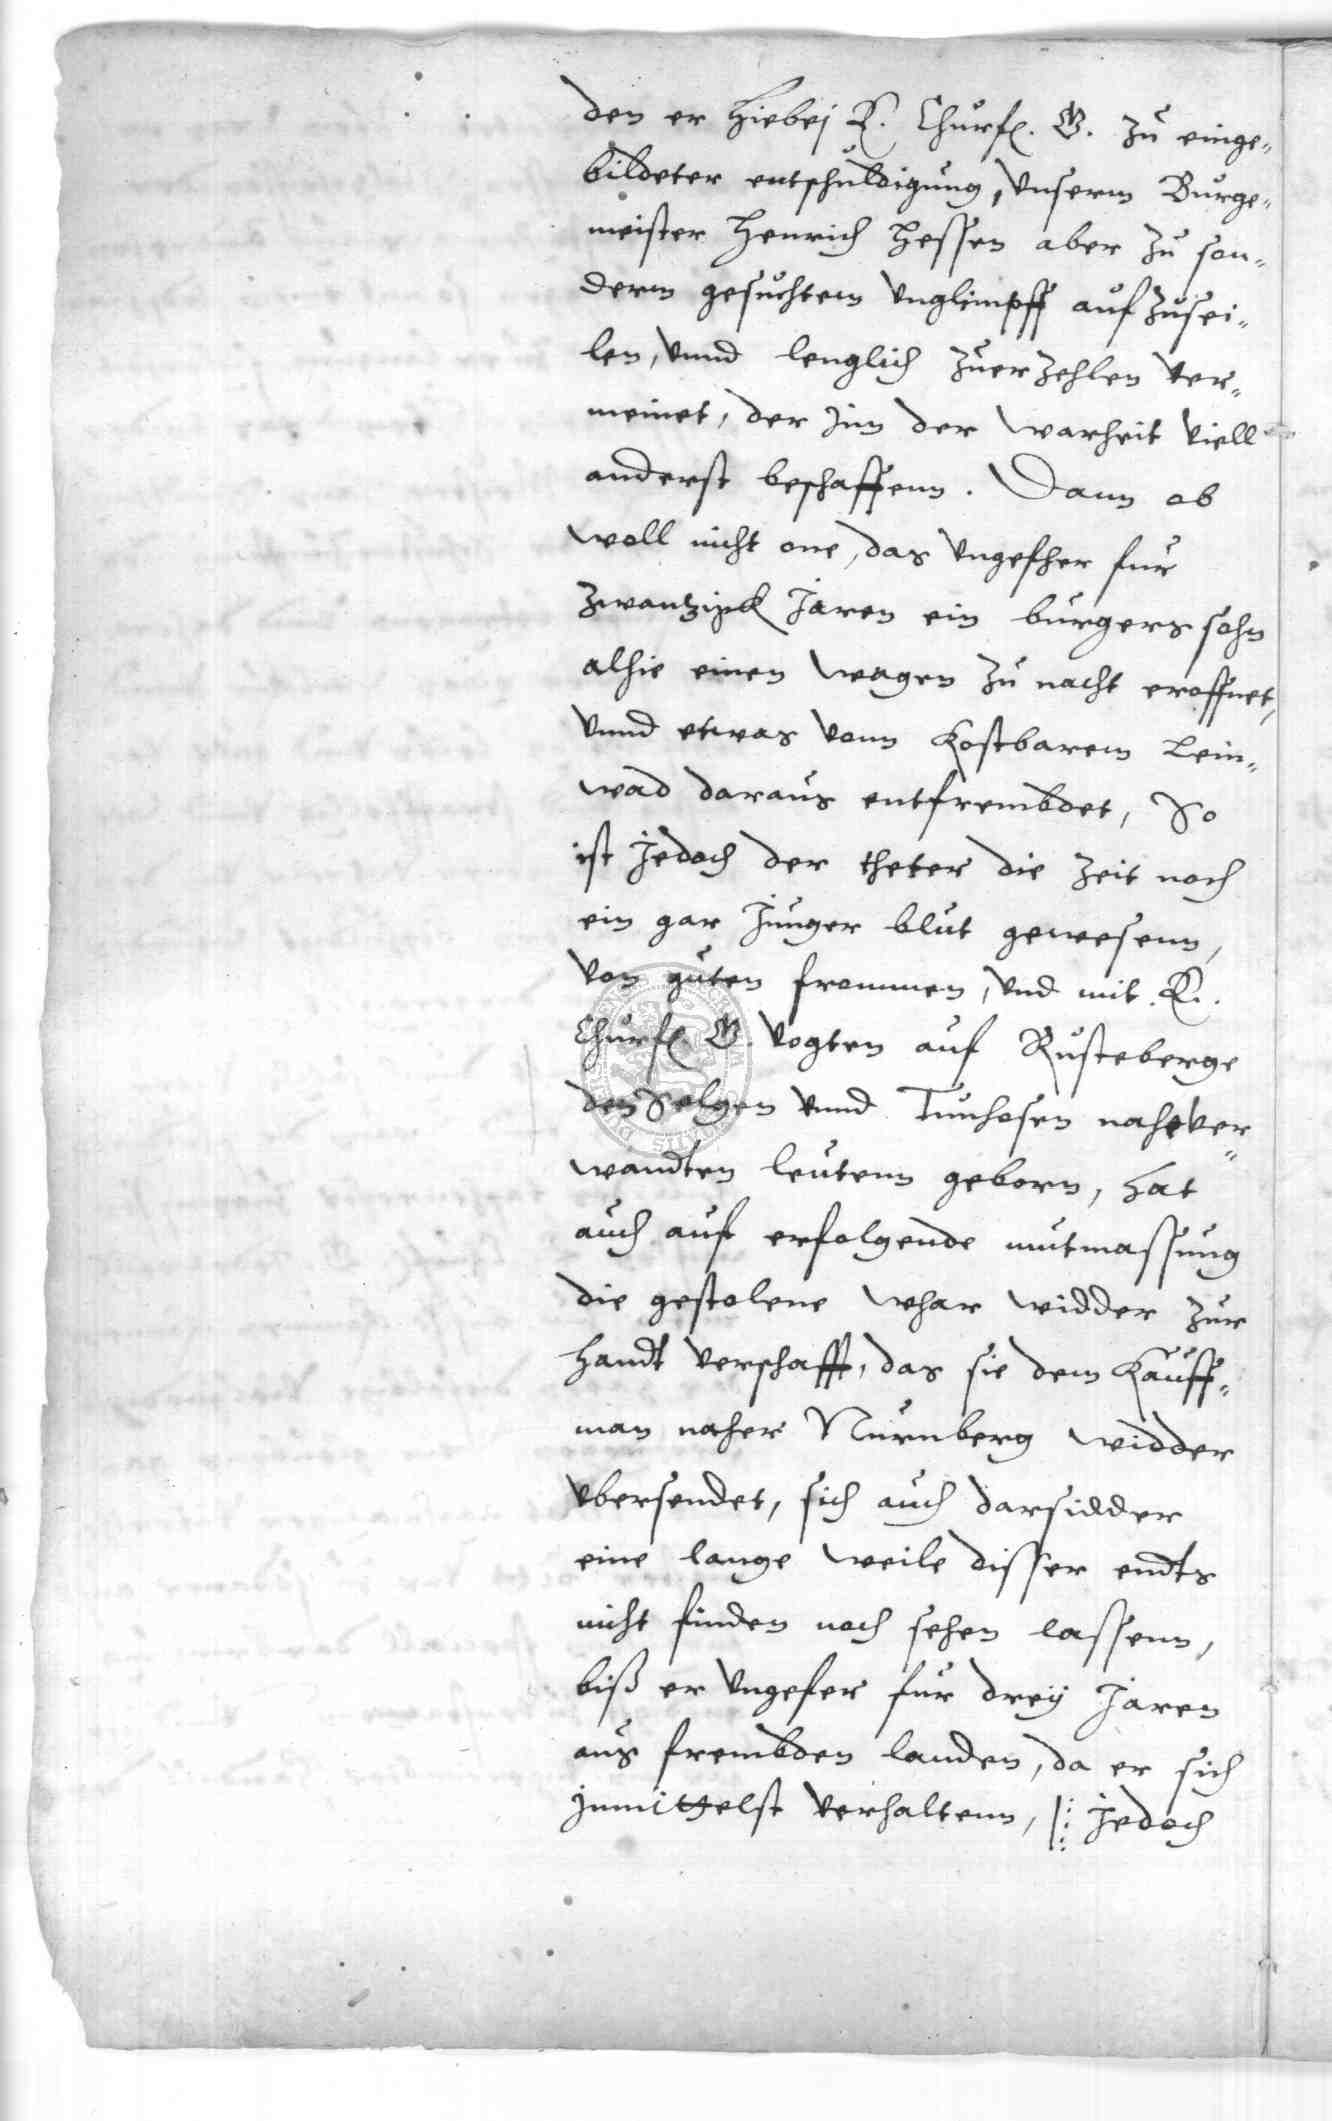 den er hiebej E. Churf. G. zu einge„
bildeter entschuldigung, Vnserm Burge„
meister Henrich Hessen aber zu son„
derm gesuchtem Vnglimpff aufzusei„
len, Vnnd lenglich zuerzehlen Ver„
meinet, der Jnn der warheit Viell
anderst beschaffenn. Dann ob
woll nicht one, das Vngefher fur
zwantzigk Jaren ein burgers sohn
alhie einen wagen zu nacht eroffnet,
Vnnd etwas Vonn Kostbarem Lein„
wad daraus entfrembdet, So
ist Jedoch der theter die zeit noch
ein gar Junger blut gewesenn,
Von guten frommen, Vnd mit E.
Churf. G. Vogten auf Rusteberge
den Selgen Vnnd Tunhosen nahe Ver„
wandten leutenn geborn, hat
auch auf erfolgende mutmassung
die gestolene whar widder zur
handt Verschafft, das sie dem Kauff„
man naher Nurnberg widder
Vbersendet, sich auch darsidder
eine lange weile disser endts
nicht finden noch sehen lassenn,
biß er Vngefer fur dreÿ Jaren
aus frembden landen, da er sich
Jnmittelst Verhaltenn, |: Jedoch